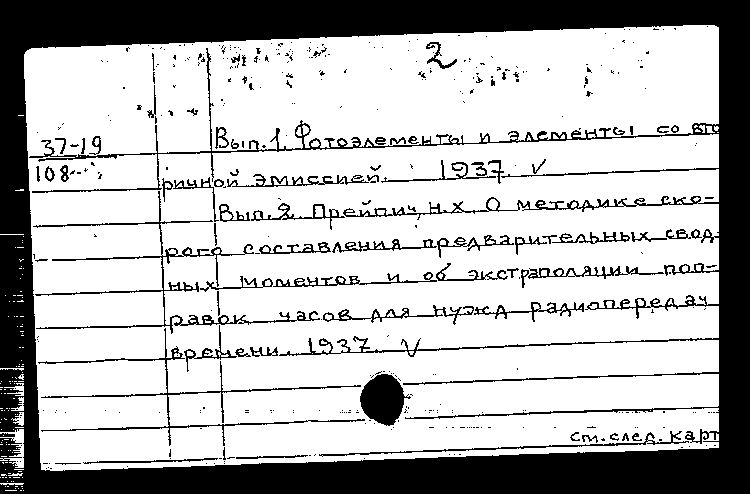 2
37-19
108
Вып. 1. Фотоэлементы и элементы со вто
ричной эмиссией. 1937. V
Вып. 2. Прейпич, Н.Х. О методике ско-
рого составления предварительных свод-
ных моментов и об экстраполяции поп-
равок часов для нужд радиопередач
времени. 1937. V
см. след. карт